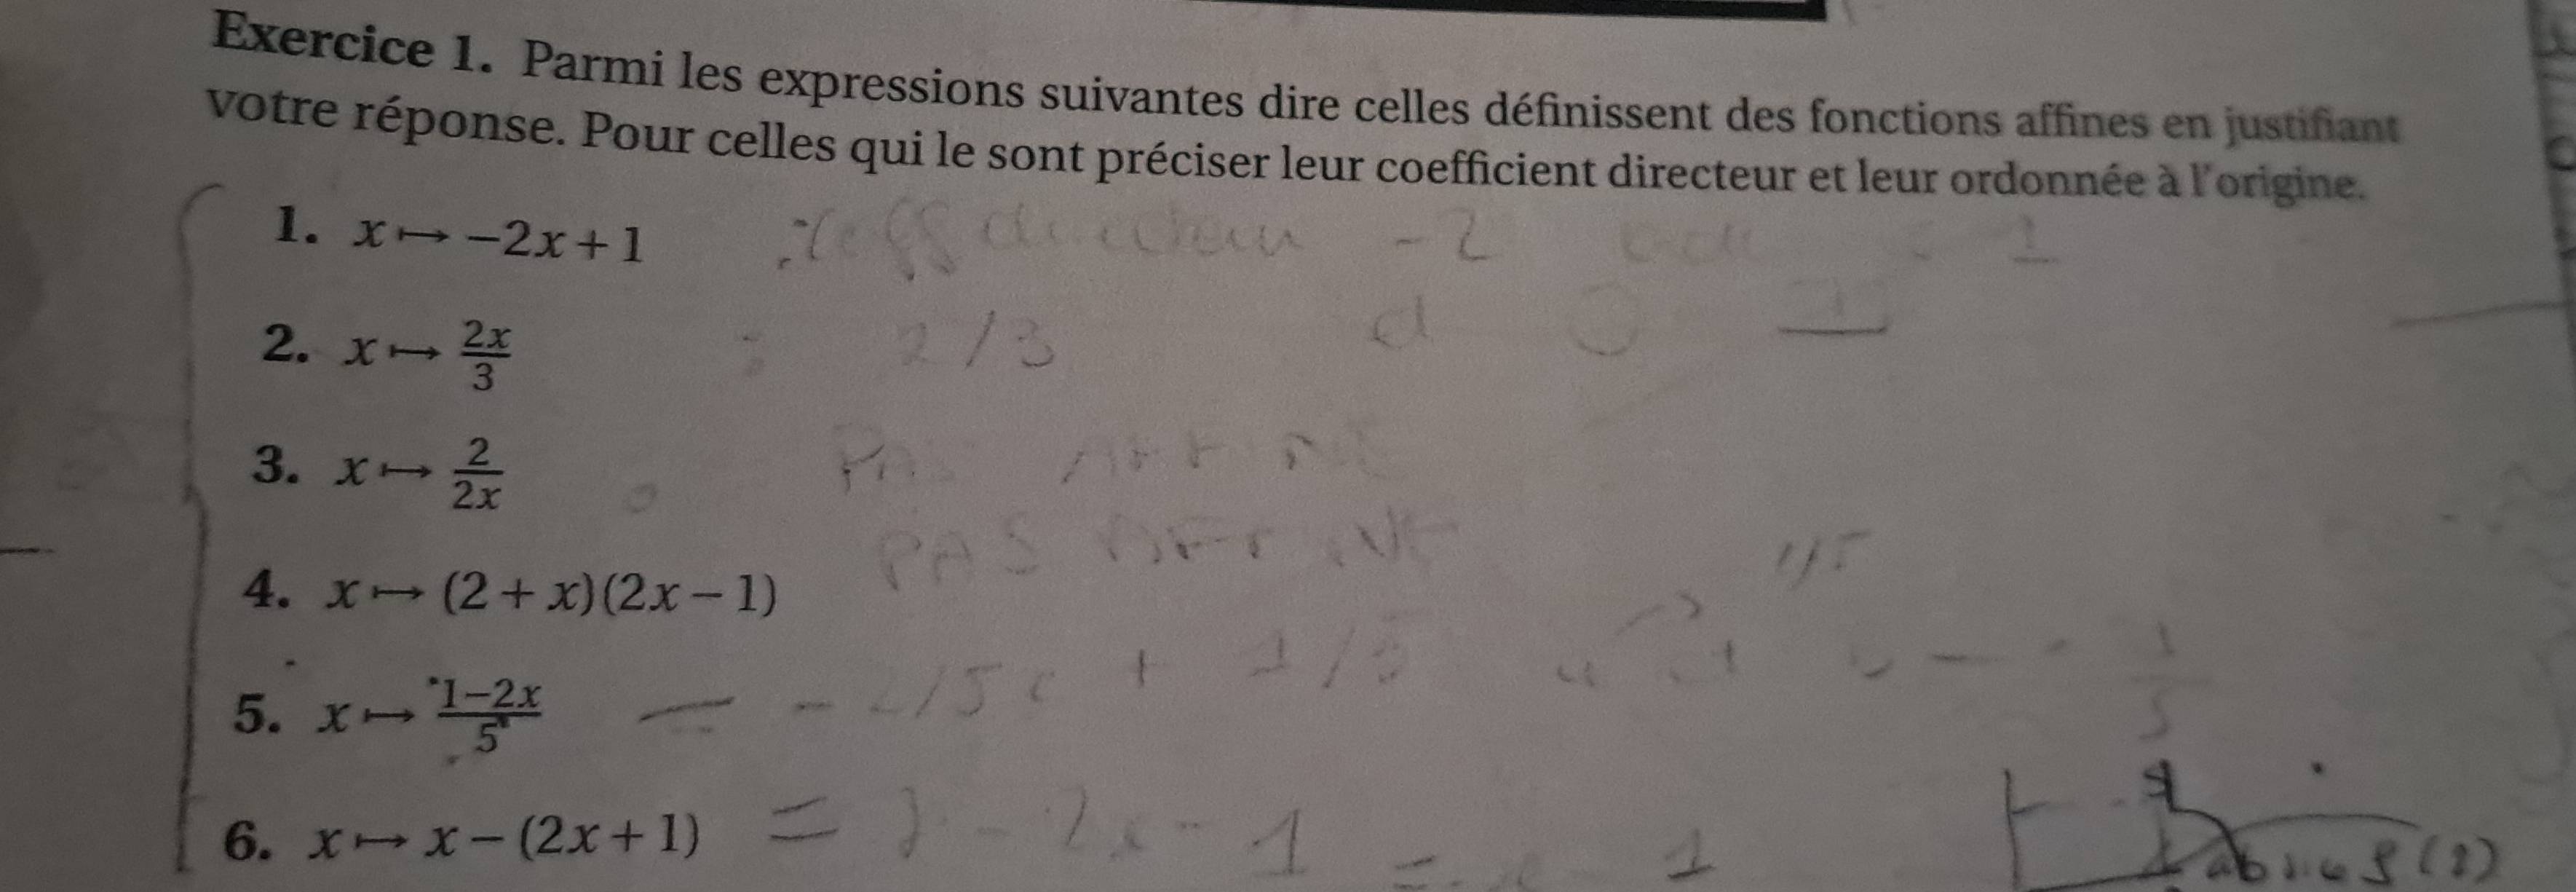 Exercice 1. Parmi les expressions suivantes dire celles définissent des fonctions affines en justifiant
votre réponse. Pour celles qui le sont préciser leur coefficient directeur et leur ordonnée à l'origine.
1. x ↦ −2x + 1 -2 1
2. x ↦ 2x/3 2/3
3. x ↦ 2/2x PAS
4. x ↦ (2 + x)(2x − 1) PAS
5. x ↦ 1−2x/5 1/5
6. x ↦ x − (2x + 1) = - 2x - 1 = 1